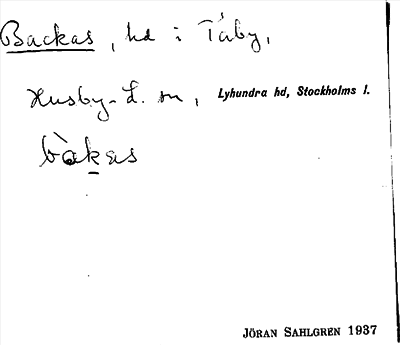 Backas, hd i Täby,
Husby-L. sn, Lyhundra hd, Stockholms l.
bàkas
JÖRAN SAHLGREN 1937